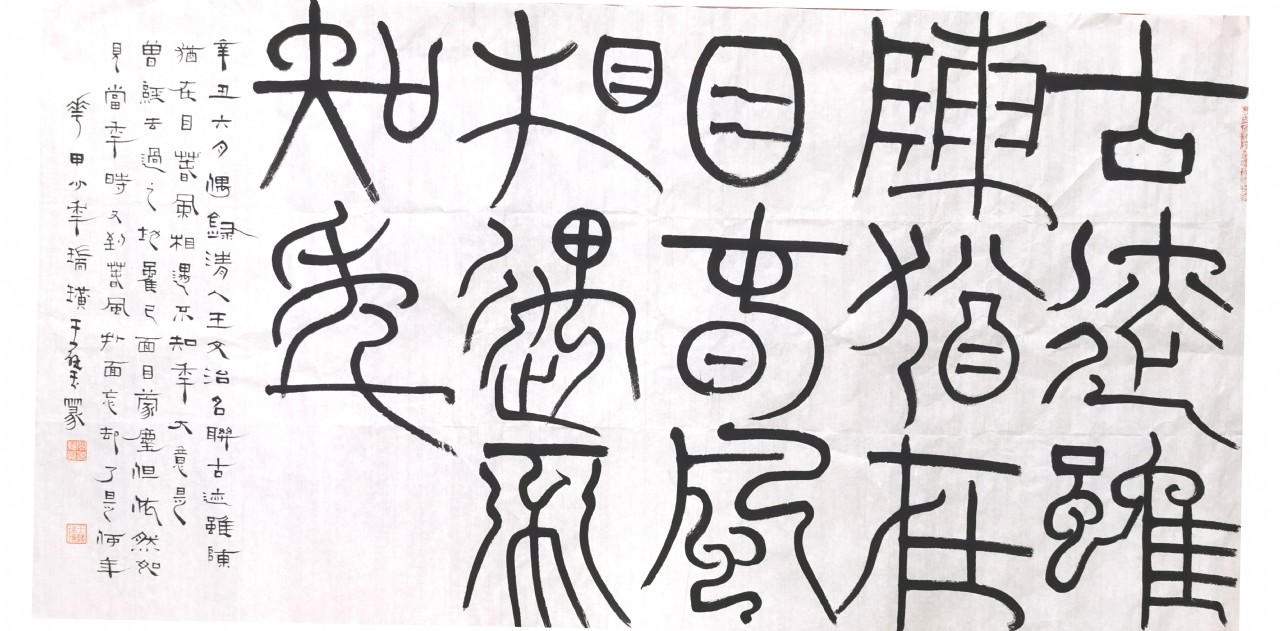 古迹雖
陳猶在
目春風
相遇不
知年
辛丑六月偶錄清人王文治名聯古迹雖陳
猶在目春風相遇不知年大意是
曾經去過之地雖已面目蒙塵但依然如
見當年時又到春風扑面忘却了是何年
華甲少年瑞璜于篆